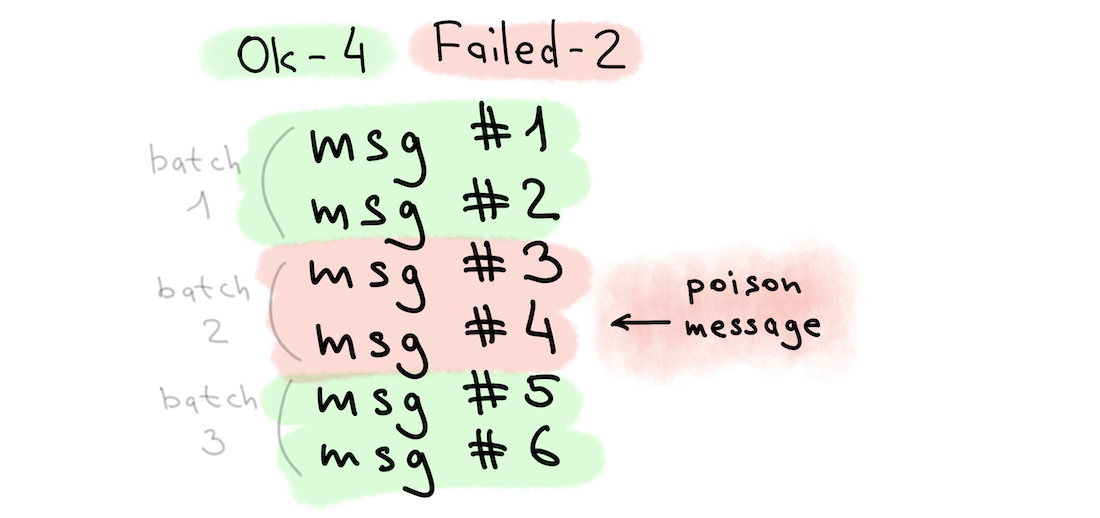 Ok-4 Failed-2
batch
1
msg #1
msg #2
batch
2
msg #3
msg #4
poison
message
batch
3
msg #5
msg #6